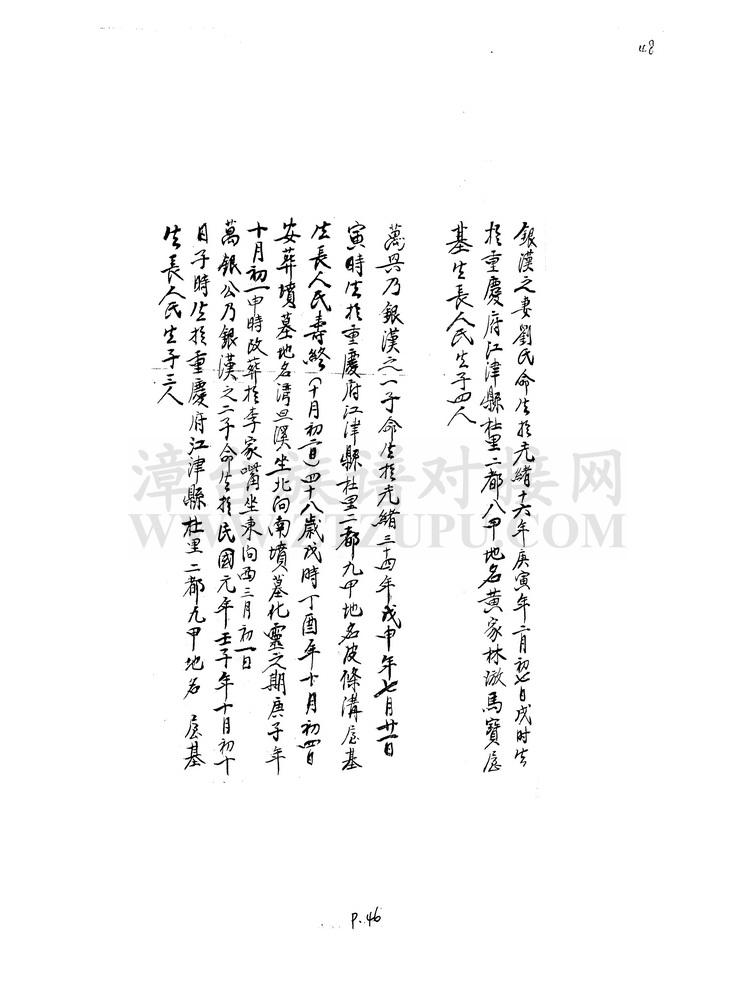 48
銀漢之妻劉氏命生於光緒十六年庚寅年二月初七日戌時生
於重慶府江津縣杜里二都八甲地名黃家林放馬寶屋
基生長人氏生子四人
萬興乃銀漢之一子命生於光緒三十四年戊申年七月廿一日
寅時生於重慶府江津縣杜里二都九甲地名皮條溝屋基
生長人氏壽終(十月初二日)四十八歲戌時丁酉年十月初四日
安葬墳墓地名湾旦溪坐北向南墳墓化靈之期庚子年
十月初一申時改葬於李家嘴坐東向西三月初一日
萬銀公乃銀漢之二子命生於民國元年壬子年十月初十
日子時生於重慶府江津縣杜里二都九甲地名 屋基
生長人氏生子三人
漳州族譜对接网
WWW.ZZZUPU.COM
P.46